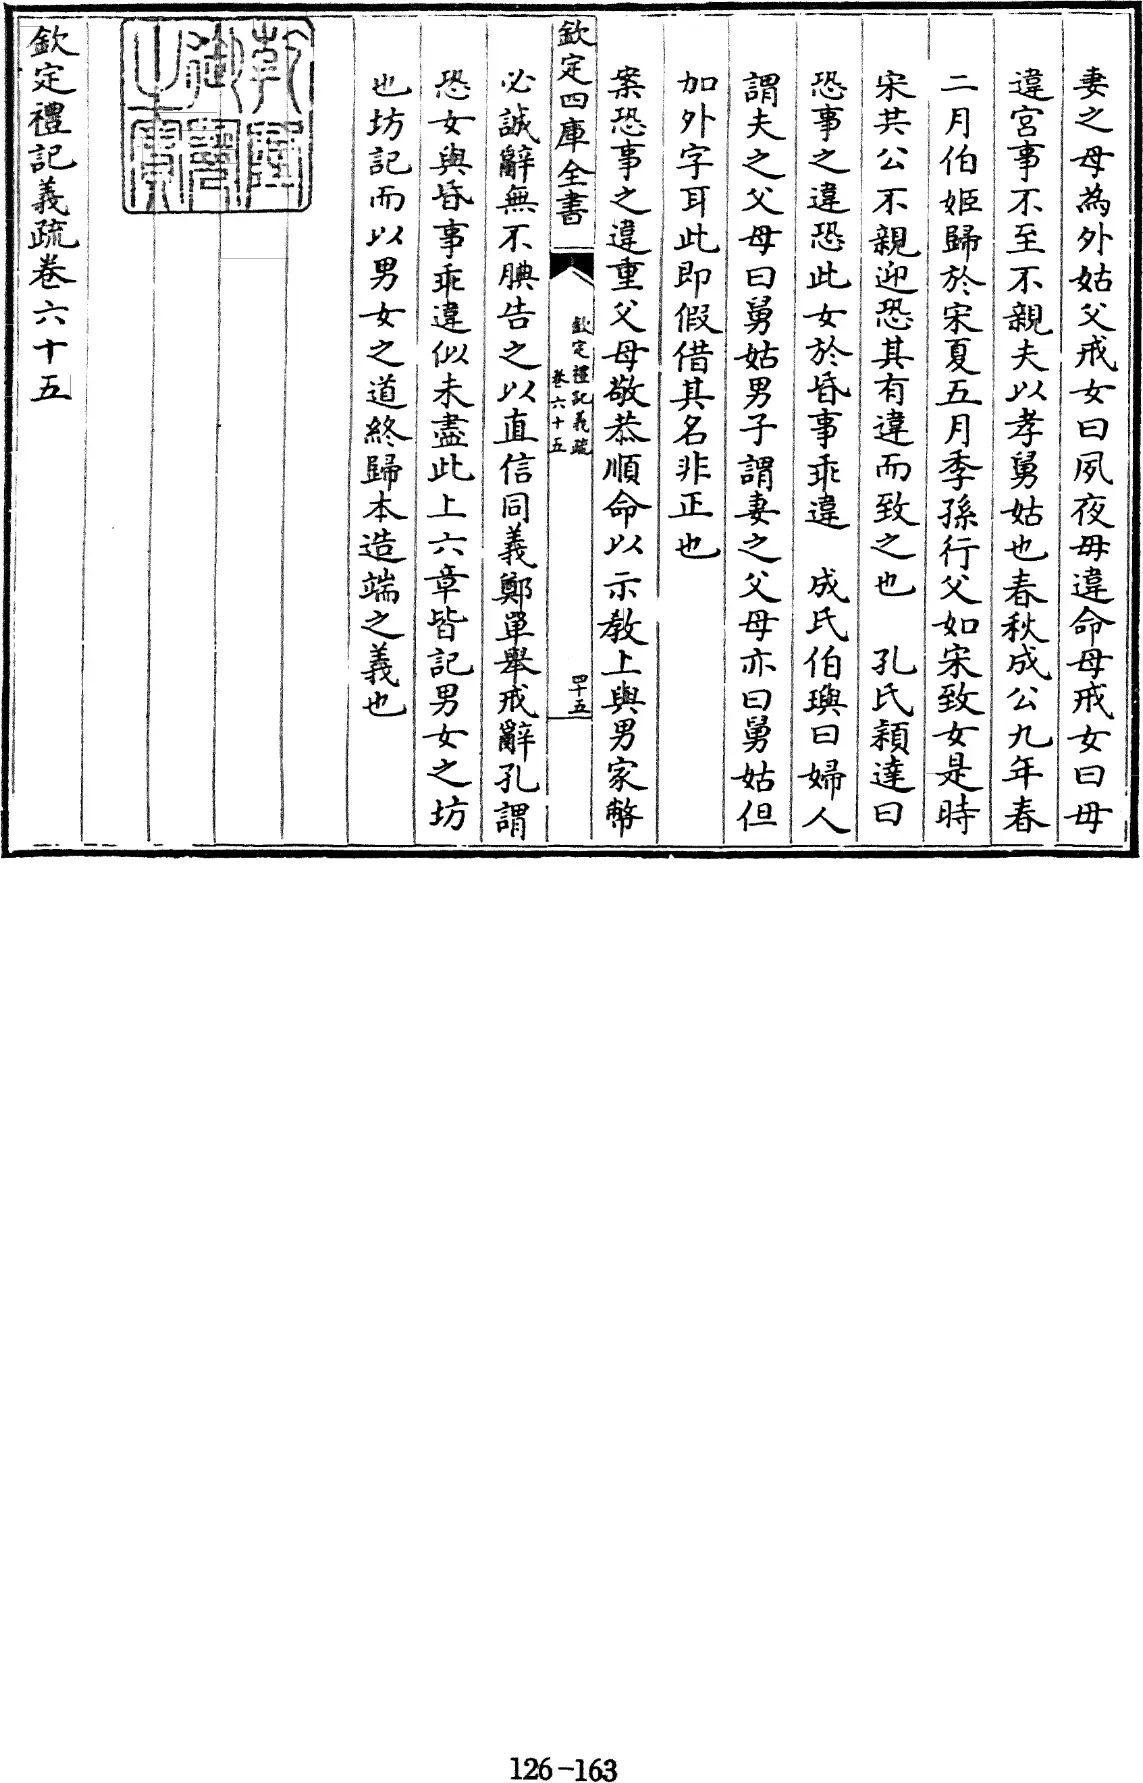 妻之母為外姑父戒女曰夙夜毋違命母戒女曰毋
違宮事不至不親夫以孝舅姑也春秋成公九年春
二月伯姬歸於宋夏五月季孫行父如宋致女是時
宋共公不親迎恐其有違而致之也　孔氏穎達曰
恐事之違恐此女於昏事乖違　成氏伯璵曰婦人
謂夫之父母曰舅姑男子謂妻之父母亦曰舅姑但
加外字耳此即假借其名非正也
案恐事之違重父母敬恭順命以示教上與男家幣
欽定四庫全書
欽定禮記義疏
卷六十五
四十五
必誠辭無不腆告之以直信同義鄭單舉戒辭孔謂
恐女與昏事乖違似未盡此上六章皆記男女之坊
也坊記而以男女之道終歸本造端之義也
乾隆御覽之寶
欽定禮記義疏卷六十五
126-163